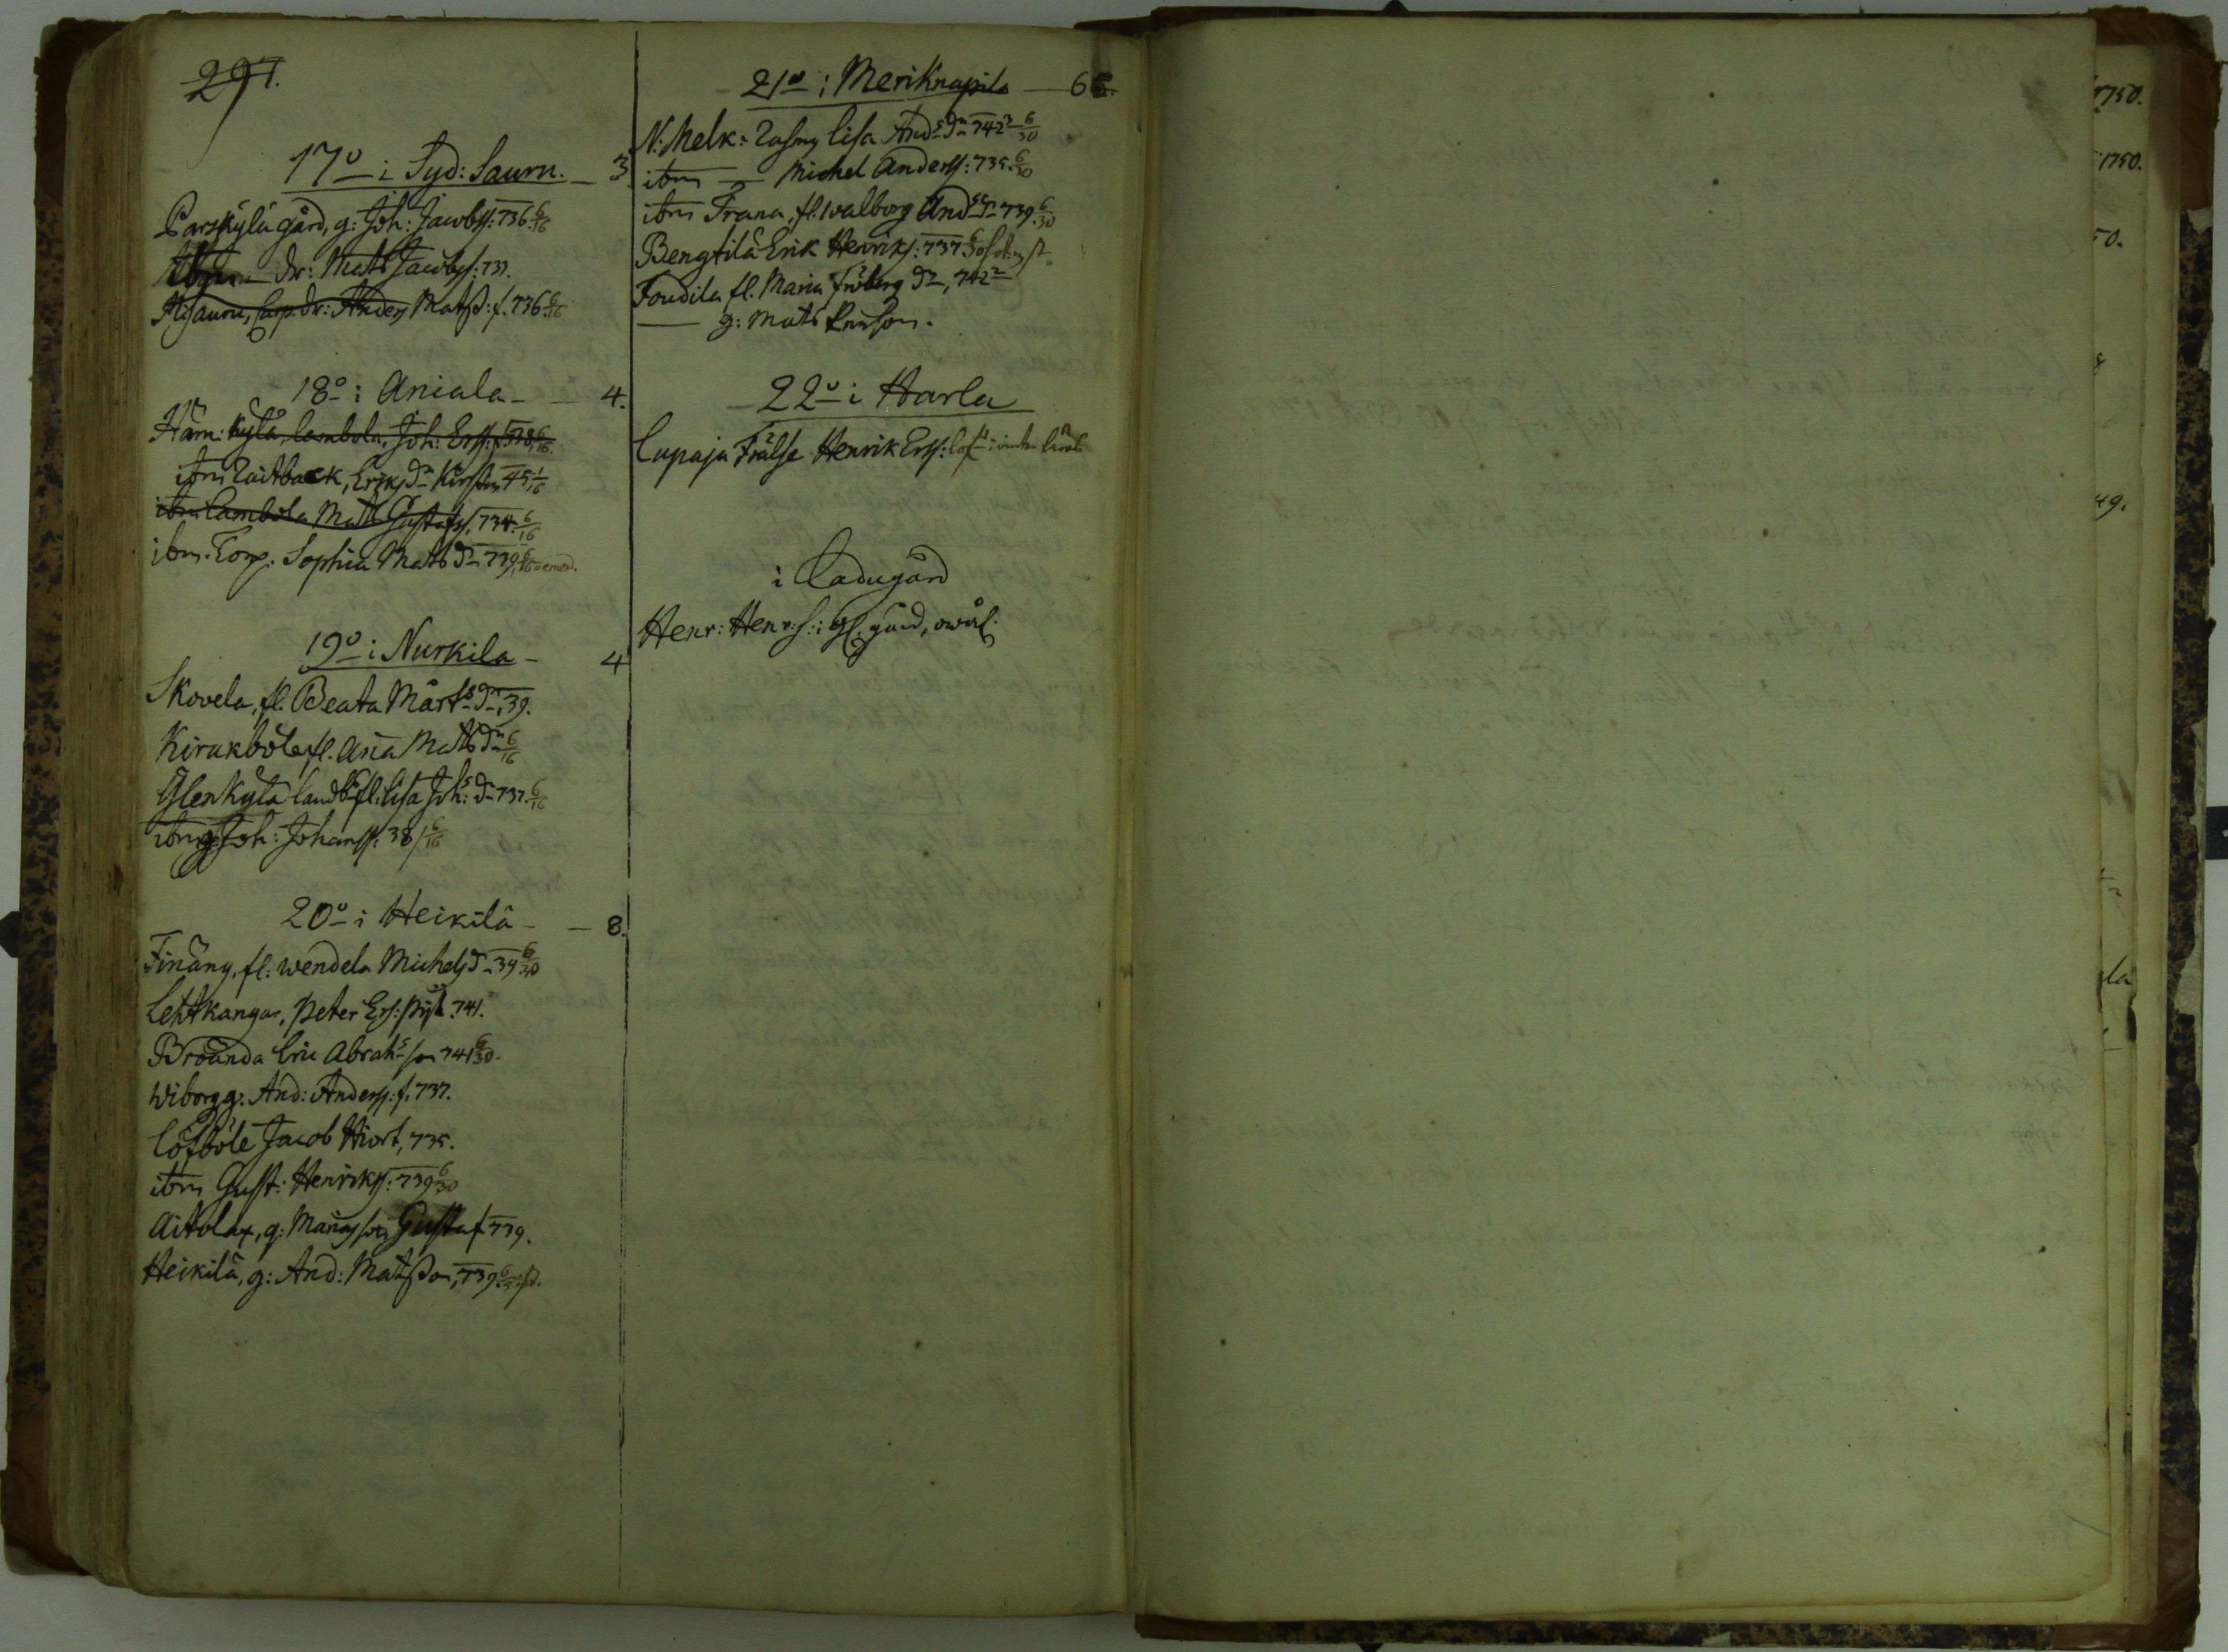 297.
17o i Syd: Sauru. 3.
Parskylä gård, g: Joh: Jacobss: 736. 6/16
dr: Mats Jacobs: 737.
Misauru, Anders Matsß: f. 736. 6/16
18o i Aniala 4.
Häm: kylä, Lambola, Joh: Erss: 738, 6/16.
ibm Eriks dr Kirstin, 45, 1/16
ibm Lambola Mats Gustafss, 734. 6/16
ibm. Torp. Sophia Mats dr 739, 6/16
19o i Nurkila 4
Skovela, fl. Beata Mårts dr, 39.
Kirakböle fl. Aña Mats dr 6/16
Glenkylä landb fl: Lisa Joh: dr 737. 6/16
ibm g: Joh: Johanss: 38 / 6/16
20o i Heikilä 8.
Finäng, fl: Wendela Michels dr 39 6/30
Lehtkangar, Peter Ers: 741.
Bröunda Eric Abrahs son 741 6/30.
Wiborg g: And: Anderss: f. 737.
Löfböle Jacob Hiort, 735.
ibm Gust: Henrikss: 739 6/30
Aitolax, g: Marias son Gustaf 739.
Heikilä, g: And: Matsson, 739. 6/30
21o i Meriknapila 66.
N: Melk: Lisa Ands dr 742 6/30
ibm Michel Anderss: 735. 6/30
ibm Frana, fl. Walborg Ands dr 739. 6/30
Bengtilä Erik Henriks: 737. 6/30
Foudila fl. Maria Fröberg dr, 742
g: Mats
22o i Harla
Lupaja Frälse Henrik Erss:
i Ladugård
Henr: Henr: s: i gård,
1750.
1750.
50.
8
49.
la